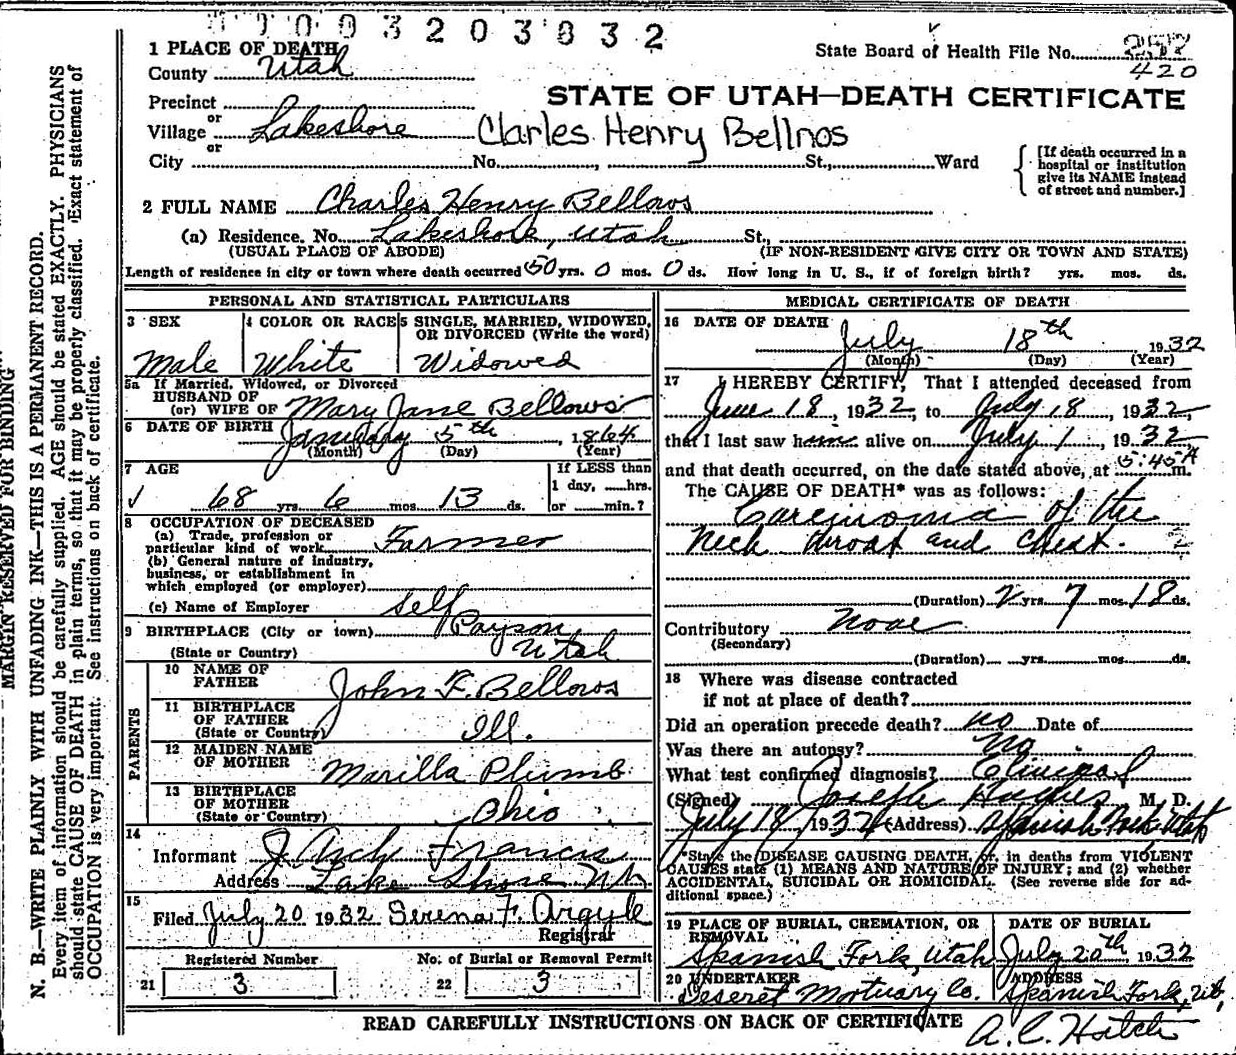 1003203832
1 PLACE OF DEATH
County Utah
State Board of Health File No. 257
420
STATE OF UTAH—DEATH CERTIFICATE
Precinct
or
Village Lakeshore
or
Clarles Henry Bellnos
City No. , St., Ward
[If death occurred in a
hospital or institution
give its NAME instead
of street and number.]
2 FULL NAME Charles Henry Bellows
(a) Residence. No. Lakeshore, Utah St.,
(USUAL PLACE OF ABODE) (IF NON-RESIDENT GIVE CITY OR TOWN AND STATE)
Length of residence in city or town where death occurred 50 yrs. 0 mos. 0 ds. How long in U. S., if of foreign birth? yrs. mos. ds.
PERSONAL AND STATISTICAL PARTICULARS
3 SEX
Male
4 COLOR OR RACE
White
5 SINGLE, MARRIED, WIDOWED,
OR DIVORCED (Write the word)
Widowed
5a If Married, Widowed, or Divorced
HUSBAND OF
(or) WIFE OF Mary Jane Bellows
6 DATE OF BIRTH January 5th, 1864
(Month) (Day) (Year)
7 AGE
68 yrs. 6 mos. 13 ds.
If LESS than
1 day, hrs.
or min.?
8 OCCUPATION OF DECEASED
(a) Trade, profession or
particular kind of work Farmer
(b) General nature of industry,
business, or establishment in
which employed (or employer)
(c) Name of Employer Self
9 BIRTHPLACE (City or town) Payson
(State or Country) Utah
PARENTS
10 NAME OF
FATHER John F. Bellows
11 BIRTHPLACE
OF FATHER
(State or Country) Ill.
12 MAIDEN NAME
OF MOTHER Marilla Plumb
13 BIRTHPLACE
OF MOTHER
(State or Country) Ohio
14
Informant J Arch Francis
Address Lake Shore Ut
15
Filed July 20 1932 Serena F. Argyle
Registrar
Registered Number
21 3
No. of Burial or Removal Permit
22 3
MEDICAL CERTIFICATE OF DEATH
16 DATE OF DEATH
July 18th 1932
(Month) (Day) (Year)
17 I HEREBY CERTIFY, That I attended deceased from
June 18, 1932, to July 18, 1932,
that I last saw him alive on July 1, 1932
and that death occurred, on the date stated above, at 5:45 A m.
The CAUSE OF DEATH* was as follows:
Carcinoma of the
Neck throat and chest.
(Duration) 2 yrs. 7 mos. 18 ds.
Contributory None
(Secondary)
(Duration) yrs. mos. ds.
18 Where was disease contracted
if not at place of death?
Did an operation precede death? no Date of
Was there an autopsy? No
What test confirmed diagnosis? Clinical
(Signed) Joseph Hughes M. D.
July 18 1932 (Address) Spanish Fork, Utah
*State the DISEASE CAUSING DEATH, or, in deaths from VIOLENT
CAUSES state (1) MEANS AND NATURE OF INJURY; and (2) whether
ACCIDENTAL, SUICIDAL OR HOMICIDAL. (See reverse side for ad-
ditional space.)
19 PLACE OF BURIAL, CREMATION, OR
REMOVAL
Spanish Fork, Utah
DATE OF BURIAL
July 20th, 1932
20 UNDERTAKER
Deseret Mortuary Co.
ADDRESS
Spanish Fork, Ut.
READ CAREFULLY INSTRUCTIONS ON BACK OF CERTIFICATE
A. C. Hatch
MARGIN RESERVED FOR BINDING
N. B.—WRITE PLAINLY WITH UNFADING INK—THIS IS A PERMANENT RECORD.
Every item of information should be carefully supplied. AGE should be stated EXACTLY. PHYSICIANS
should state CAUSE OF DEATH in plain terms, so that it may be properly classified. Exact statement of
OCCUPATION is very important. See Instructions on back of certificate.